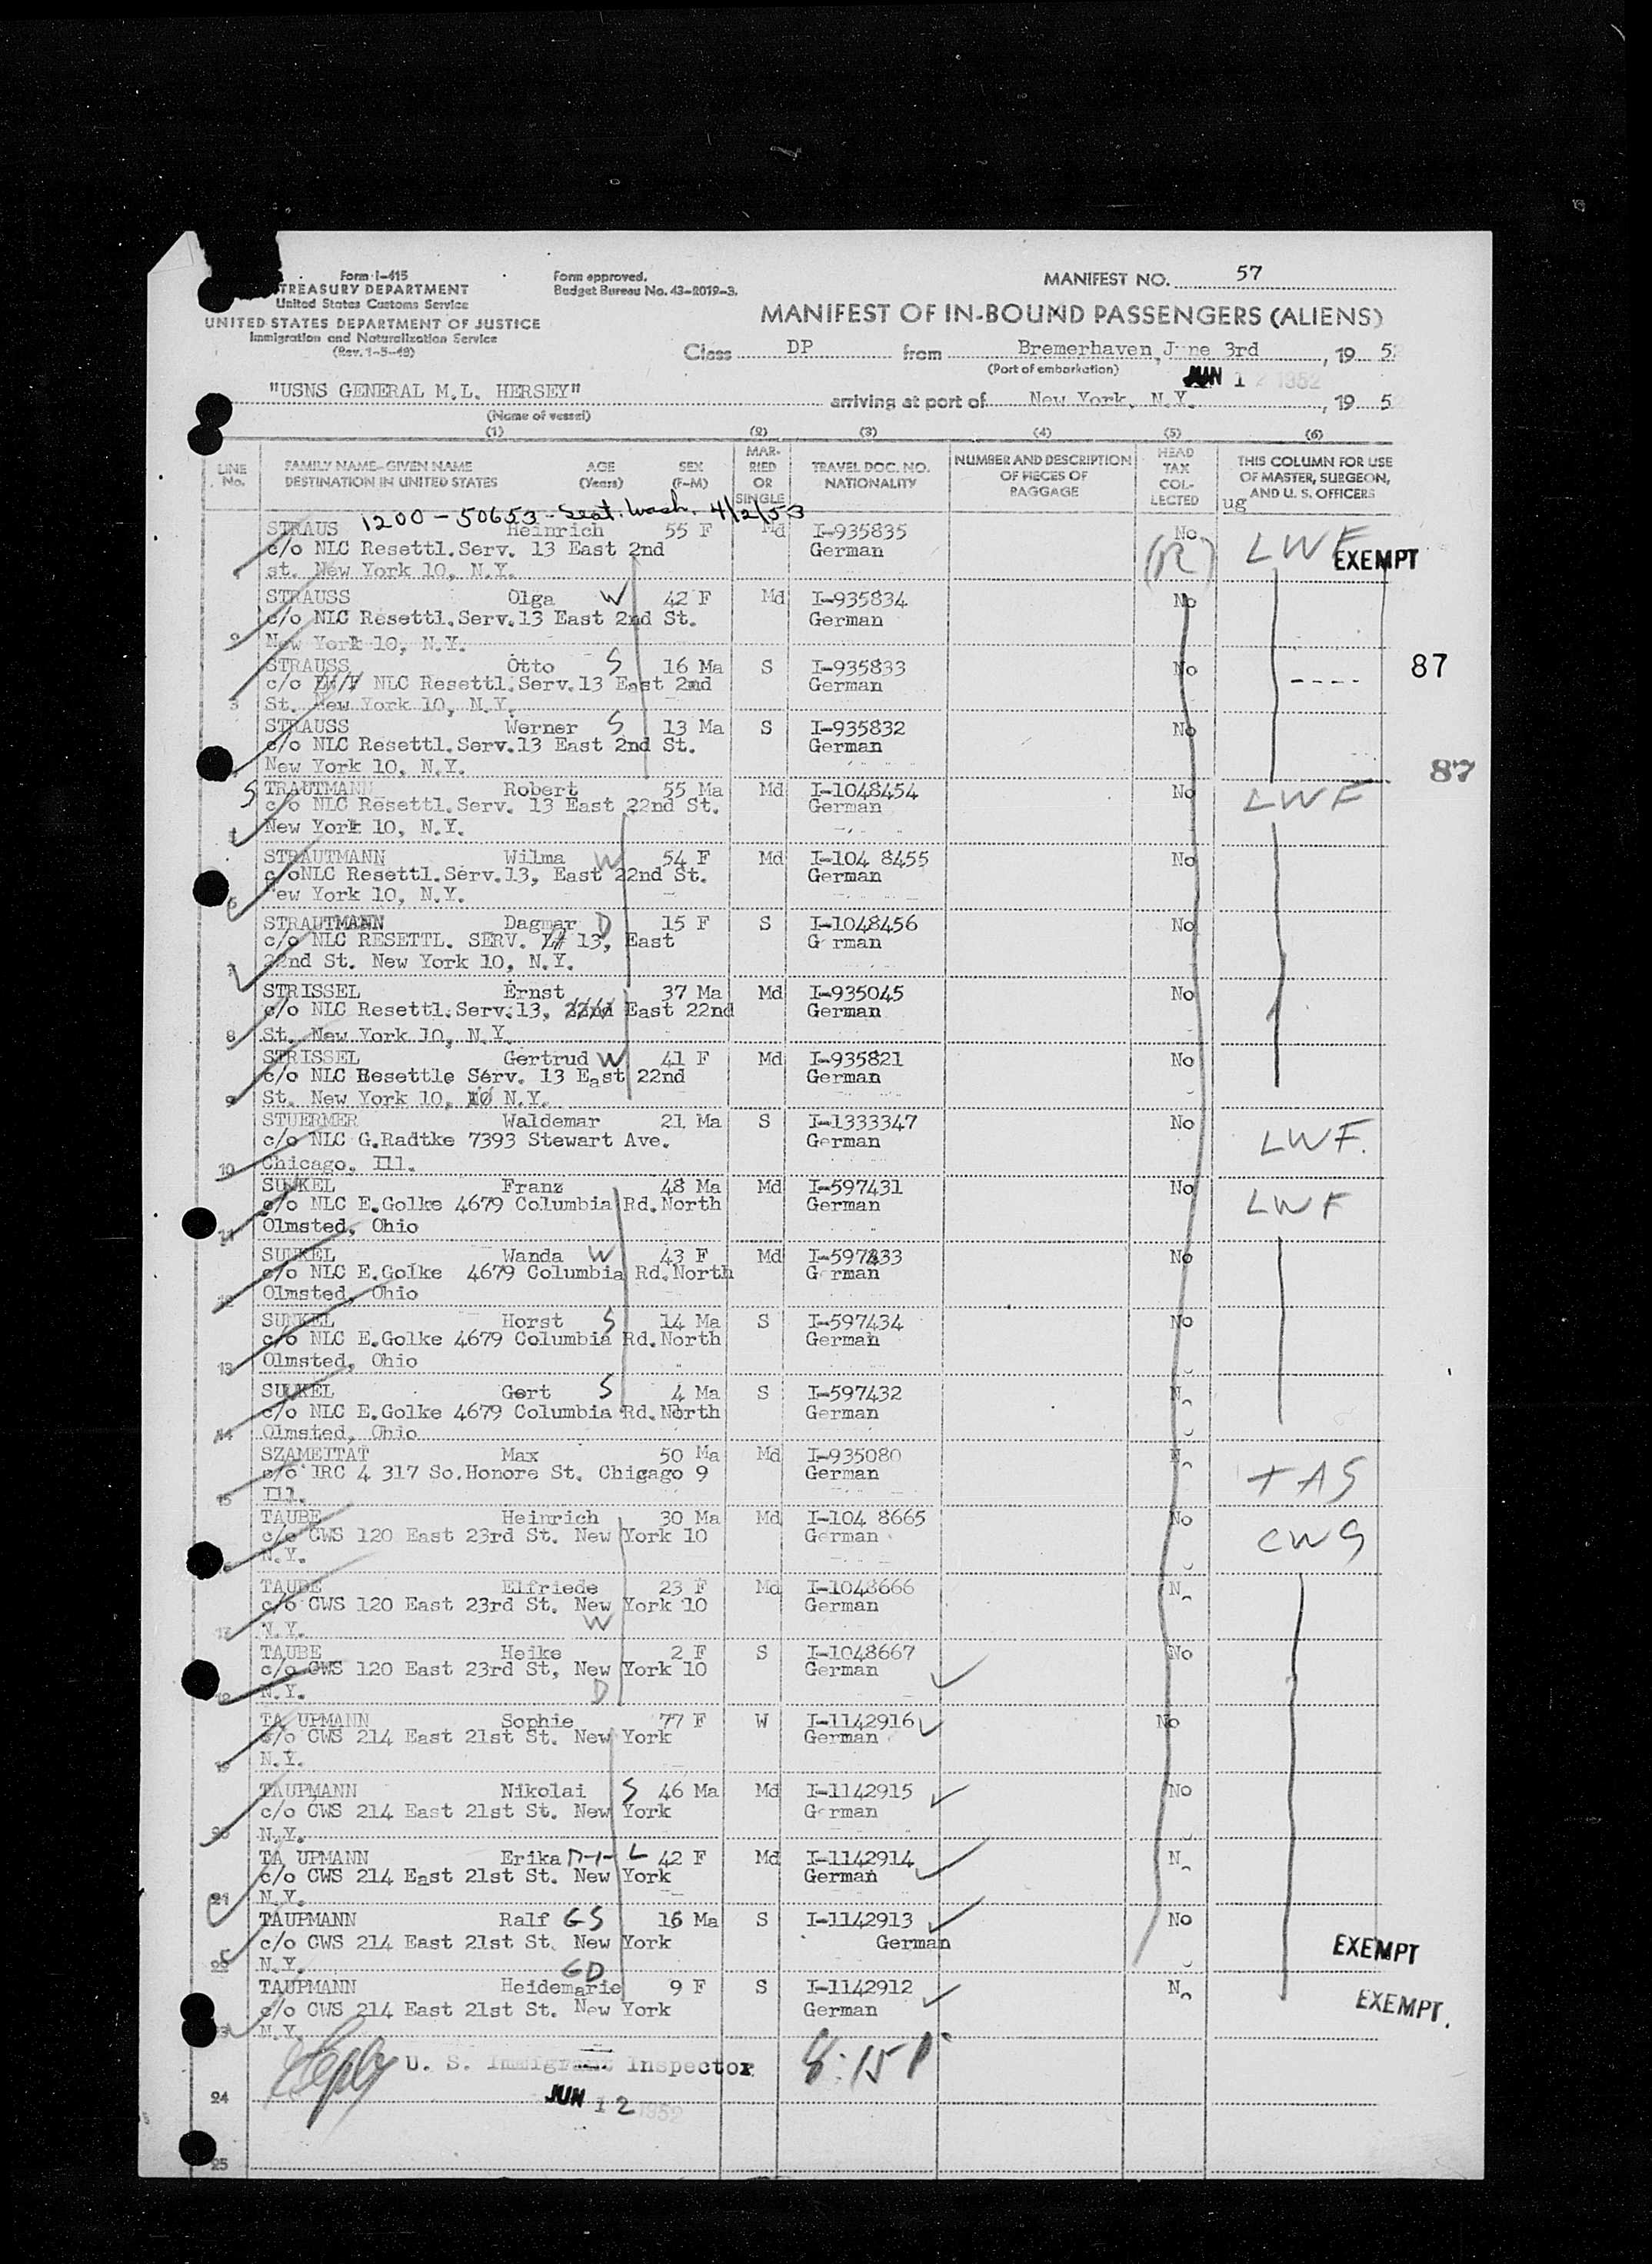 Form I-415
TREASURY DEPARTMENT
United States Customs Service
UNITED STATES DEPARTMENT OF JUSTICE
Immigration and Naturalization Service
(Rev. 1-5-49)
Form approved.
Budget Bureau No. 43-R019-3.
MANIFEST NO. 57
MANIFEST OF IN-BOUND PASSENGERS (ALIENS)
Class DP from Bremerhaven, June 3rd, 195
(Port of embarkation)
JUN 12 1952
"USNS GENERAL M.L. HERSEY" arriving at port of New York, N.Y., 195
(Name of vessel)
(1) (2) (3) (4) (5) (6)
LINE No. FAMILY NAME-GIVEN NAME DESTINATION IN UNITED STATES AGE (Years) SEX (F-M) MARRIED OR SINGLE TRAVEL DOC. NO. NATIONALITY NUMBER AND DESCRIPTION OF PIECES OF BAGGAGE HEAD TAX COLLECTED THIS COLUMN FOR USE OF MASTER, SURGEON, AND U. S. OFFICERS
ug
1200-50653 - Seat. Wash. 4/2/53
STRAUS Heinrich 55 F Md I-935835 No LWF
c/o NLC Resettl.Serv. 13 East 2nd German (R) EXEMPT
st. New York 10, N.Y.
STRAUSS Olga W 42 F Md I-935834 No
c/o NLC Resettl.Serv.13 East 2nd St. German
2 New York 10, N.Y.
STRAUSS Otto S 16 Ma S I-935833 No 87
c/o NLC Resettl.Serv.13 East 2nd German
3 St. New York 10, N.Y.
STRAUSS Werner S 13 Ma S I-935832 No
c/o NLC Resettl.Serv.13 East 2nd St. German
New York 10, N.Y. 87
STRAUTMANN Robert 55 Ma Md I-1048454 No LWF
c/o NLC Resettl.Serv. 13 East 22nd St. German
New York 10, N.Y.
STRAUTMANN Wilma W 54 F Md I-104 8455 No
c/oNLC Resettl.Serv.13, East 22nd St. German
6 ew York 10, N.Y.
STRAUTMANN Dagmar D 15 F S I-1048456 No
c/o NLC RESETTL. SERV. 13, East G rman
7 22nd St. New York 10, N.Y.
STRISSEL Ernst 37 Ma Md I-935045 No
c/o NLC Resettl.Serv.13, 22nd East 22nd German
8 St. New York 10, N.Y.
STRISSEL Gertrud W 41 F Md I-935821 No
c/o NLC Resettle Serv. 13 East 22nd German
9 St. New York 10, 10 N.Y.
STUERMER Waldemar 21 Ma S I-1333347 No
c/o NLC G.Radtke 7393 Stewart Ave. German LWF.
10 Chicago, Ill.
SUNKEL Franz 48 Ma Md I-597431 No LWF
c/o NLC E.Golke 4679 Columbia Rd.North German
11 Olmsted, Ohio
SUNKEL Wanda W 43 F Md No
c/o NLC E.Golke 4679 Columbia Rd.North G rman
12 Olmsted, Ohio
SUNKEL Horst S 14 Ma S I-597434 No
c/o NLC E.Golke 4679 Columbia Rd.North German
13 Olmsted, Ohio
SUNKEL Gert S 4 Ma S I-597432 N
c/o NLC E.Golke 4679 Columbia Rd.North German
14 Olmsted, Ohio
SZAMEITAT Max 50 Ma Md I-935080
c/o IRC 4 317 So.Honore St. Chigago 9 German TAS
15 Ill.
TAUBE Heinrich 30 Ma Md I-104 8665 No
c/o CWS 120 East 23rd St. New York 10 German CWS
N.Y.
TAUBE Elfriede 23 F Md I-1048666 N
c/o CWS 120 East 23rd St. New York 10 German
17 N.Y. W
TAUBE Heike 2 F S I-1048667 No
c/o CWS 120 East 23rd St, New York 10 German
18 N.Y. D
TA UPMANN Sophie 77 F W I-1142916 No
c/o CWS 214 East 21st St. New York German
19 N.Y.
TAUPMANN Nikolai S 46 Ma Md I-1142915 No
c/o CWS 214 East 21st St. New York German
20 N.Y.
TA UPMANN Erika D-I-L 42 F Md I-1142914 N
c/o CWS 214 East 21st St. New York German
21 N.Y.
TAUPMANN Ralf GS 16 Ma S I-1142913 No
c/o CWS 214 East 21st St. New York German EXEMPT
22 N.Y. GD
TAUPMANN Heidemarie 9 F S I-1142912 N
c/o CWS 214 East 21st St. New York German EXEMPT.
N.Y.
U. S. Immigrant Inspector 8:15 P
24 JUN 12 1952
25